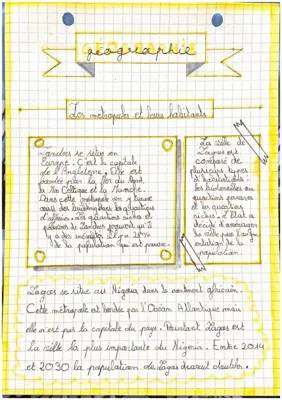 géographie
Les métropoles et leurs habitants
Londres se situe en
Europe. C'est la capitale
de l'Angleterre. Elle est
bordée par la Mer du Nord
la Mer Celtique et la Manche.
Dans cette métropole on y trouve
aussi des buildings dans les quartiers
d'affaires. Les quartiers riches et
pauvres de Londres
de la population qui est pauvre.
La ville de
Lagos est
composé de
plusieurs types
d'habitats:
les bidonvilles ou
quartiers pauvres
et les quartiers
riches. L'Etat a
décidé d'aménager
la ville pour l'augm
entation de la
population.
Lagos se situe au Nigéria dans le continent africain.
Cette métropole est bordée par l'Océan Atlantique mais
elle n'est pas la capitale du pays. Pourtant Lagos est
la ville la plus importante du Nigéria. Entre 2014
et 2030 la population de Lagos devrait doubler.